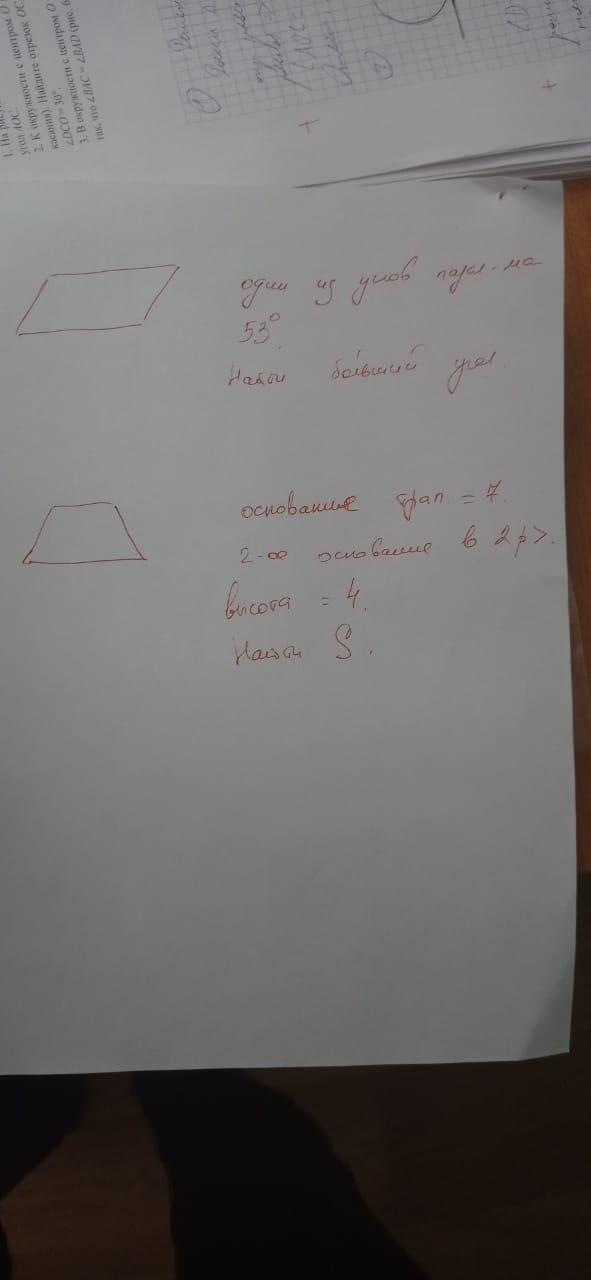 1. На
угол АОС.
2. К окружности с центром О
касания). Найдите отрезок ОС
∠DCO = 30°.
3. В окружности с центром О
так, что ∠BAC = ∠BAD (рис. 6
один из углов парал-ма
53°.
Найти больший угол.
основание трап. = 7.
2-ое основание в 2 р >.
высота = 4.
Найти S.